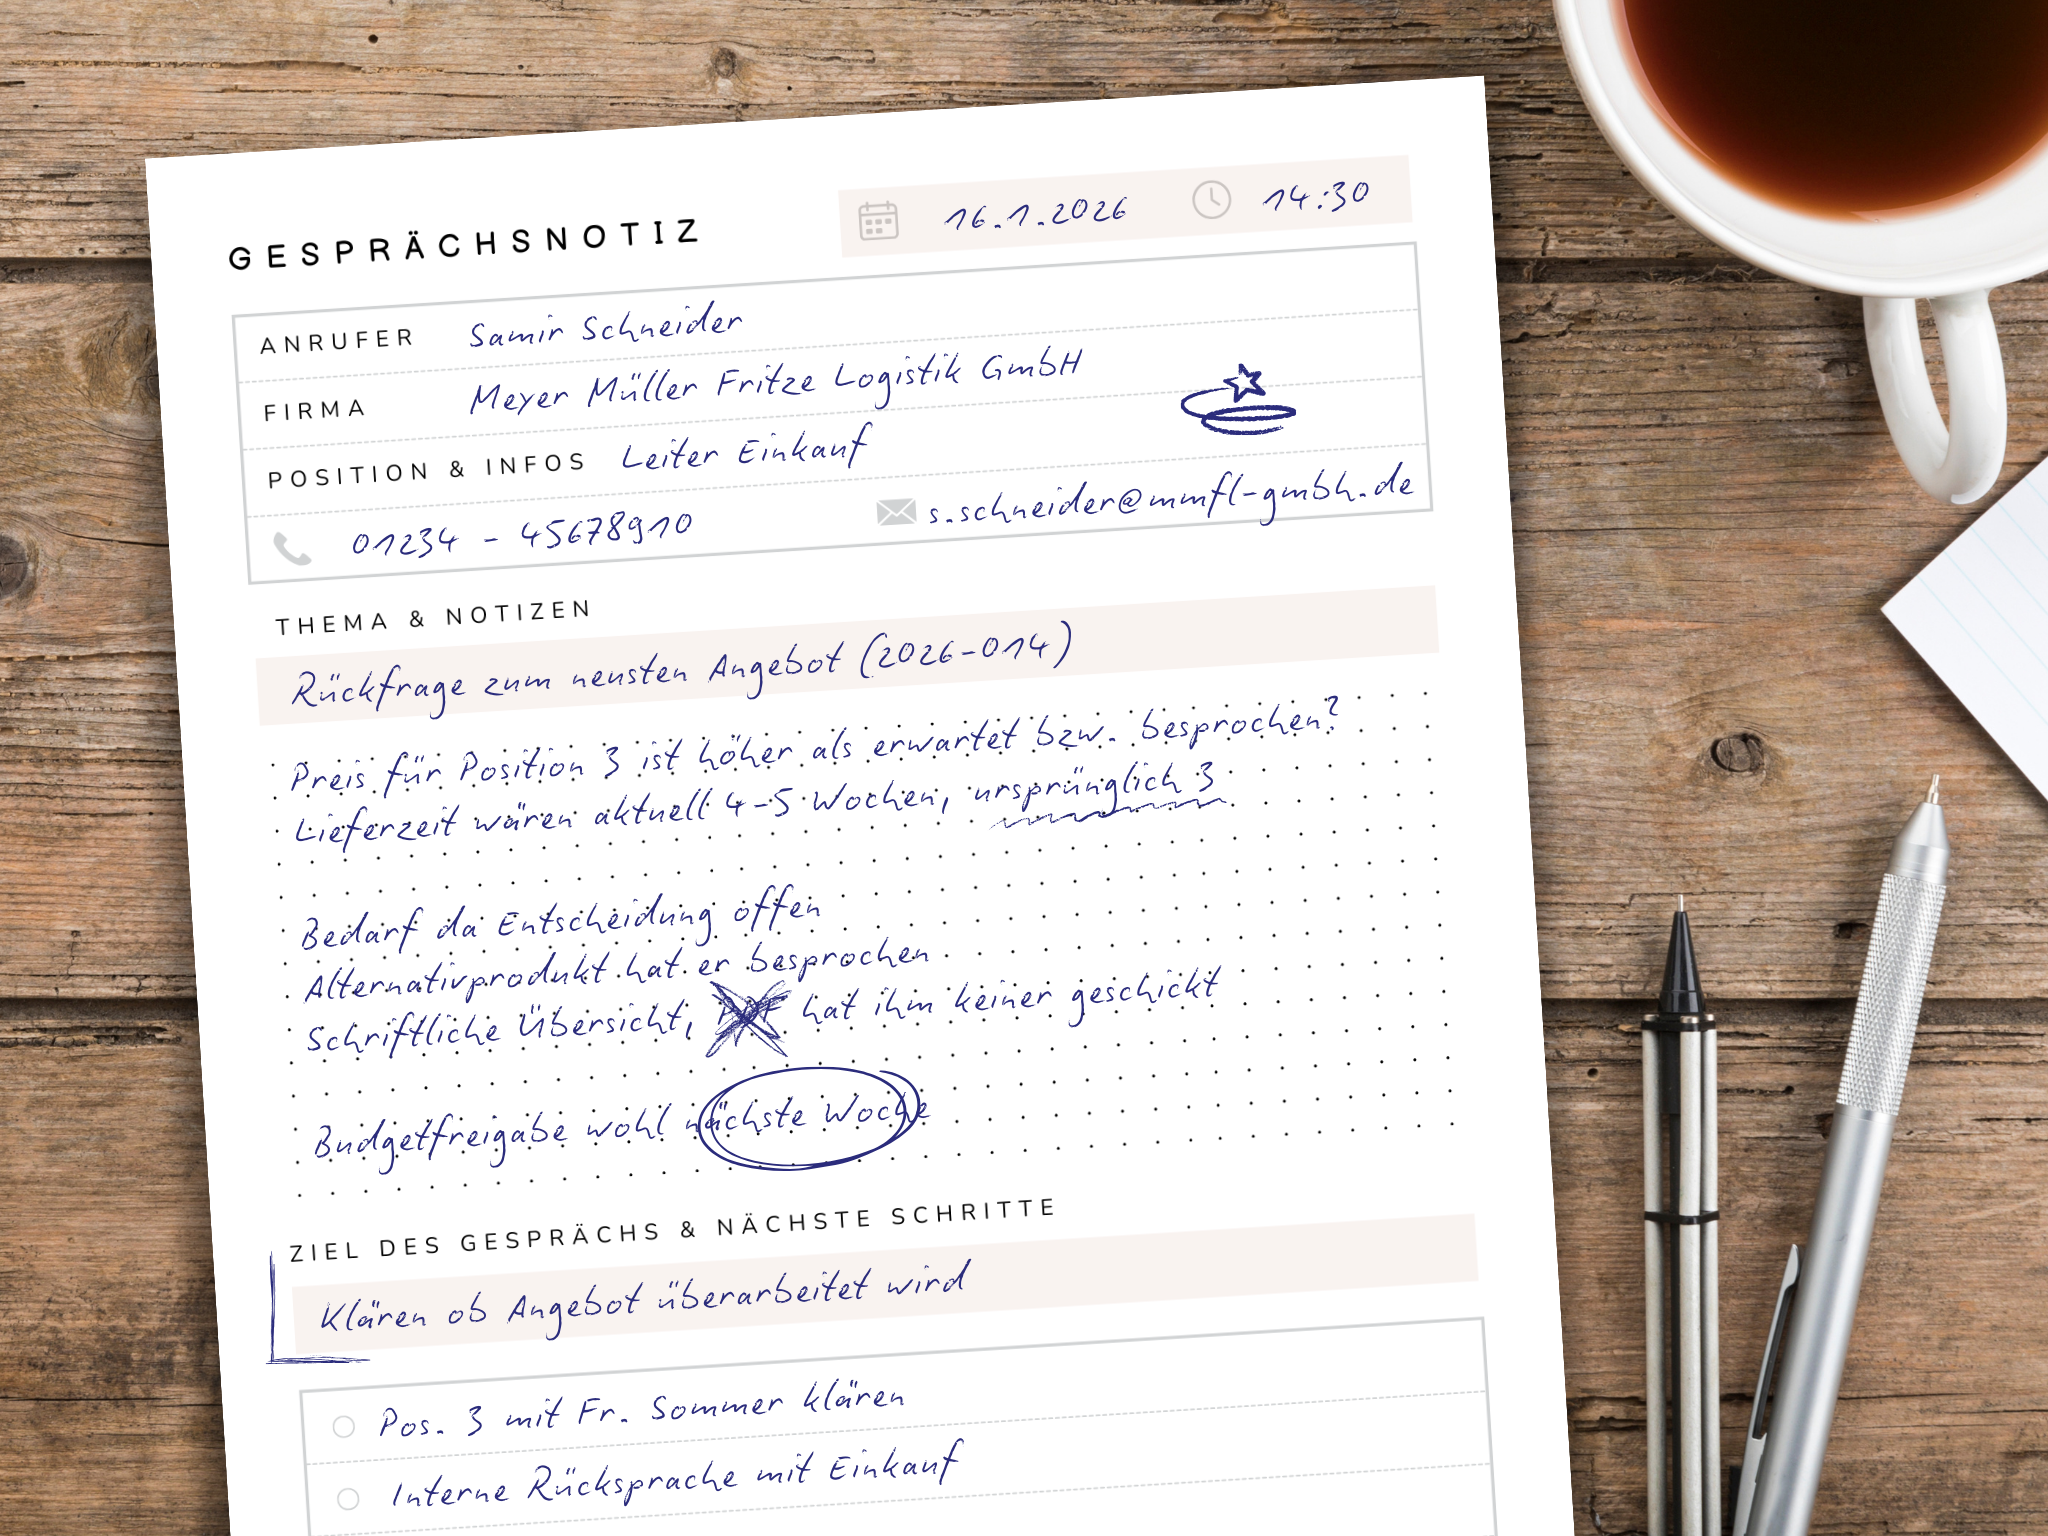 GESPRÄCHSNOTIZ
16.1.2026 14:30
ANRUFER Samir Schneider
FIRMA Meyer Müller Fritze Logistik GmbH
POSITION & INFOS Leiter Einkauf
01234 - 45678910 s.schneider@mmfl-gmbh.de
THEMA & NOTIZEN
Rückfrage zum neusten Angebot (2026-014)
Preis für Position 3 ist höher als erwartet bzw. besprochen?
Lieferzeit wären aktuell 4-5 Wochen, ursprünglich 3
Bedarf da Entscheidung offen
Alternativprodukt hat er besprochen
Schriftliche Übersicht, hat ihm keiner geschickt
Budgetfreigabe wohl nächste Woche
ZIEL DES GESPRÄCHS & NÄCHSTE SCHRITTE
Klären ob Angebot überarbeitet wird
Pos. 3 mit Fr. Sommer klären
Interne Rücksprache mit Einkauf